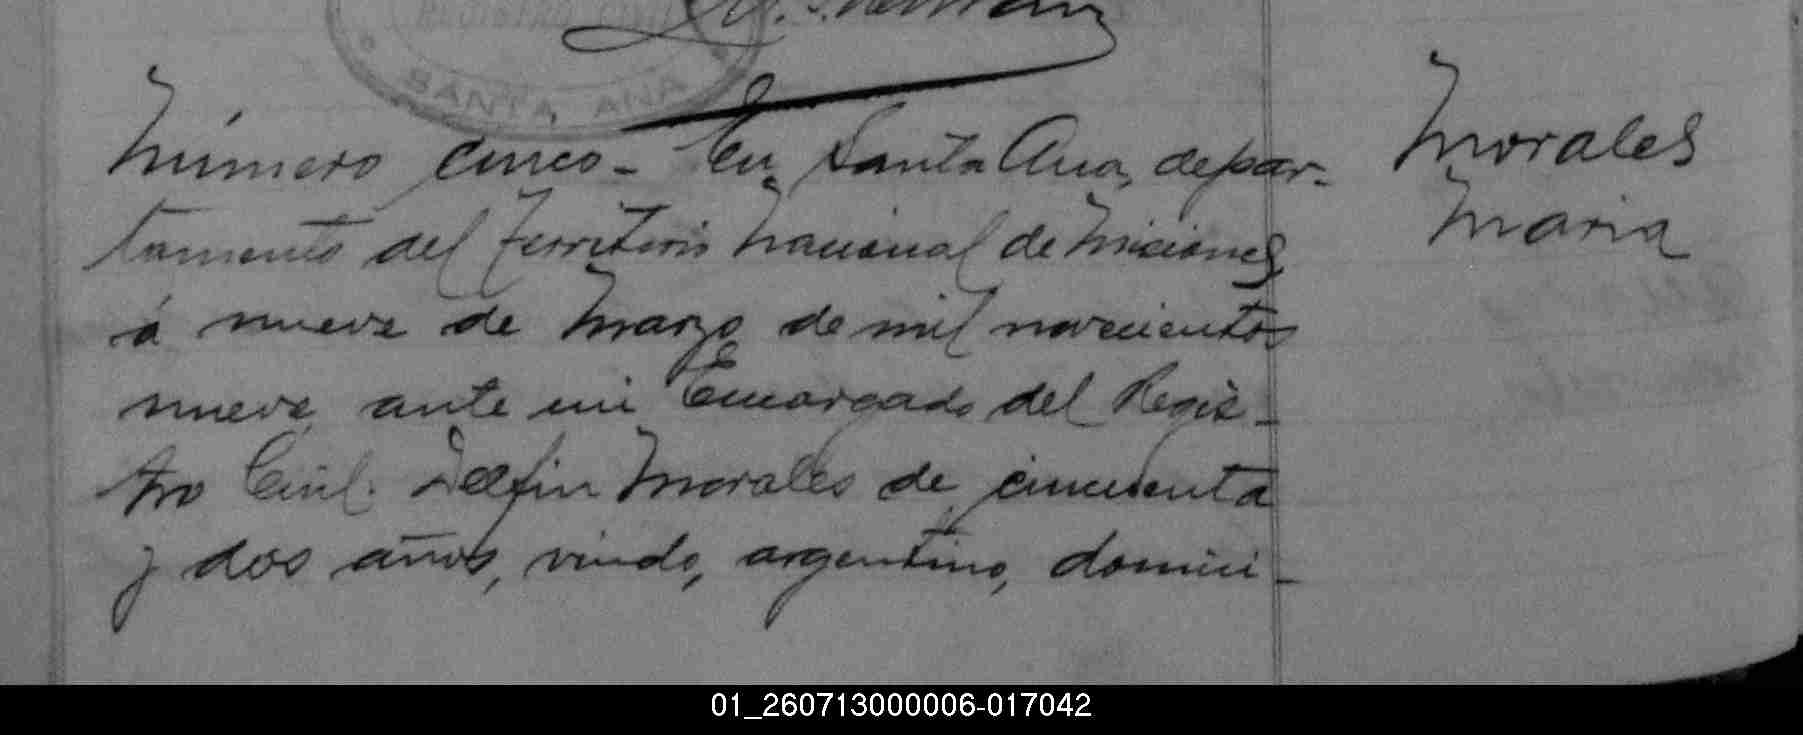 SANTA ANA
Número cinco - En Santa Ana, depar-
tamento del Territorio Nacional de Misiones,
á nueve de Marzo de mil novecientos
nueve, ante mi Encargado del Regis-
tro Civil. Delfin Morales de cincuenta
y dos años, viudo, argentino, domici-
Morales
Maria
01_260713000006-017042